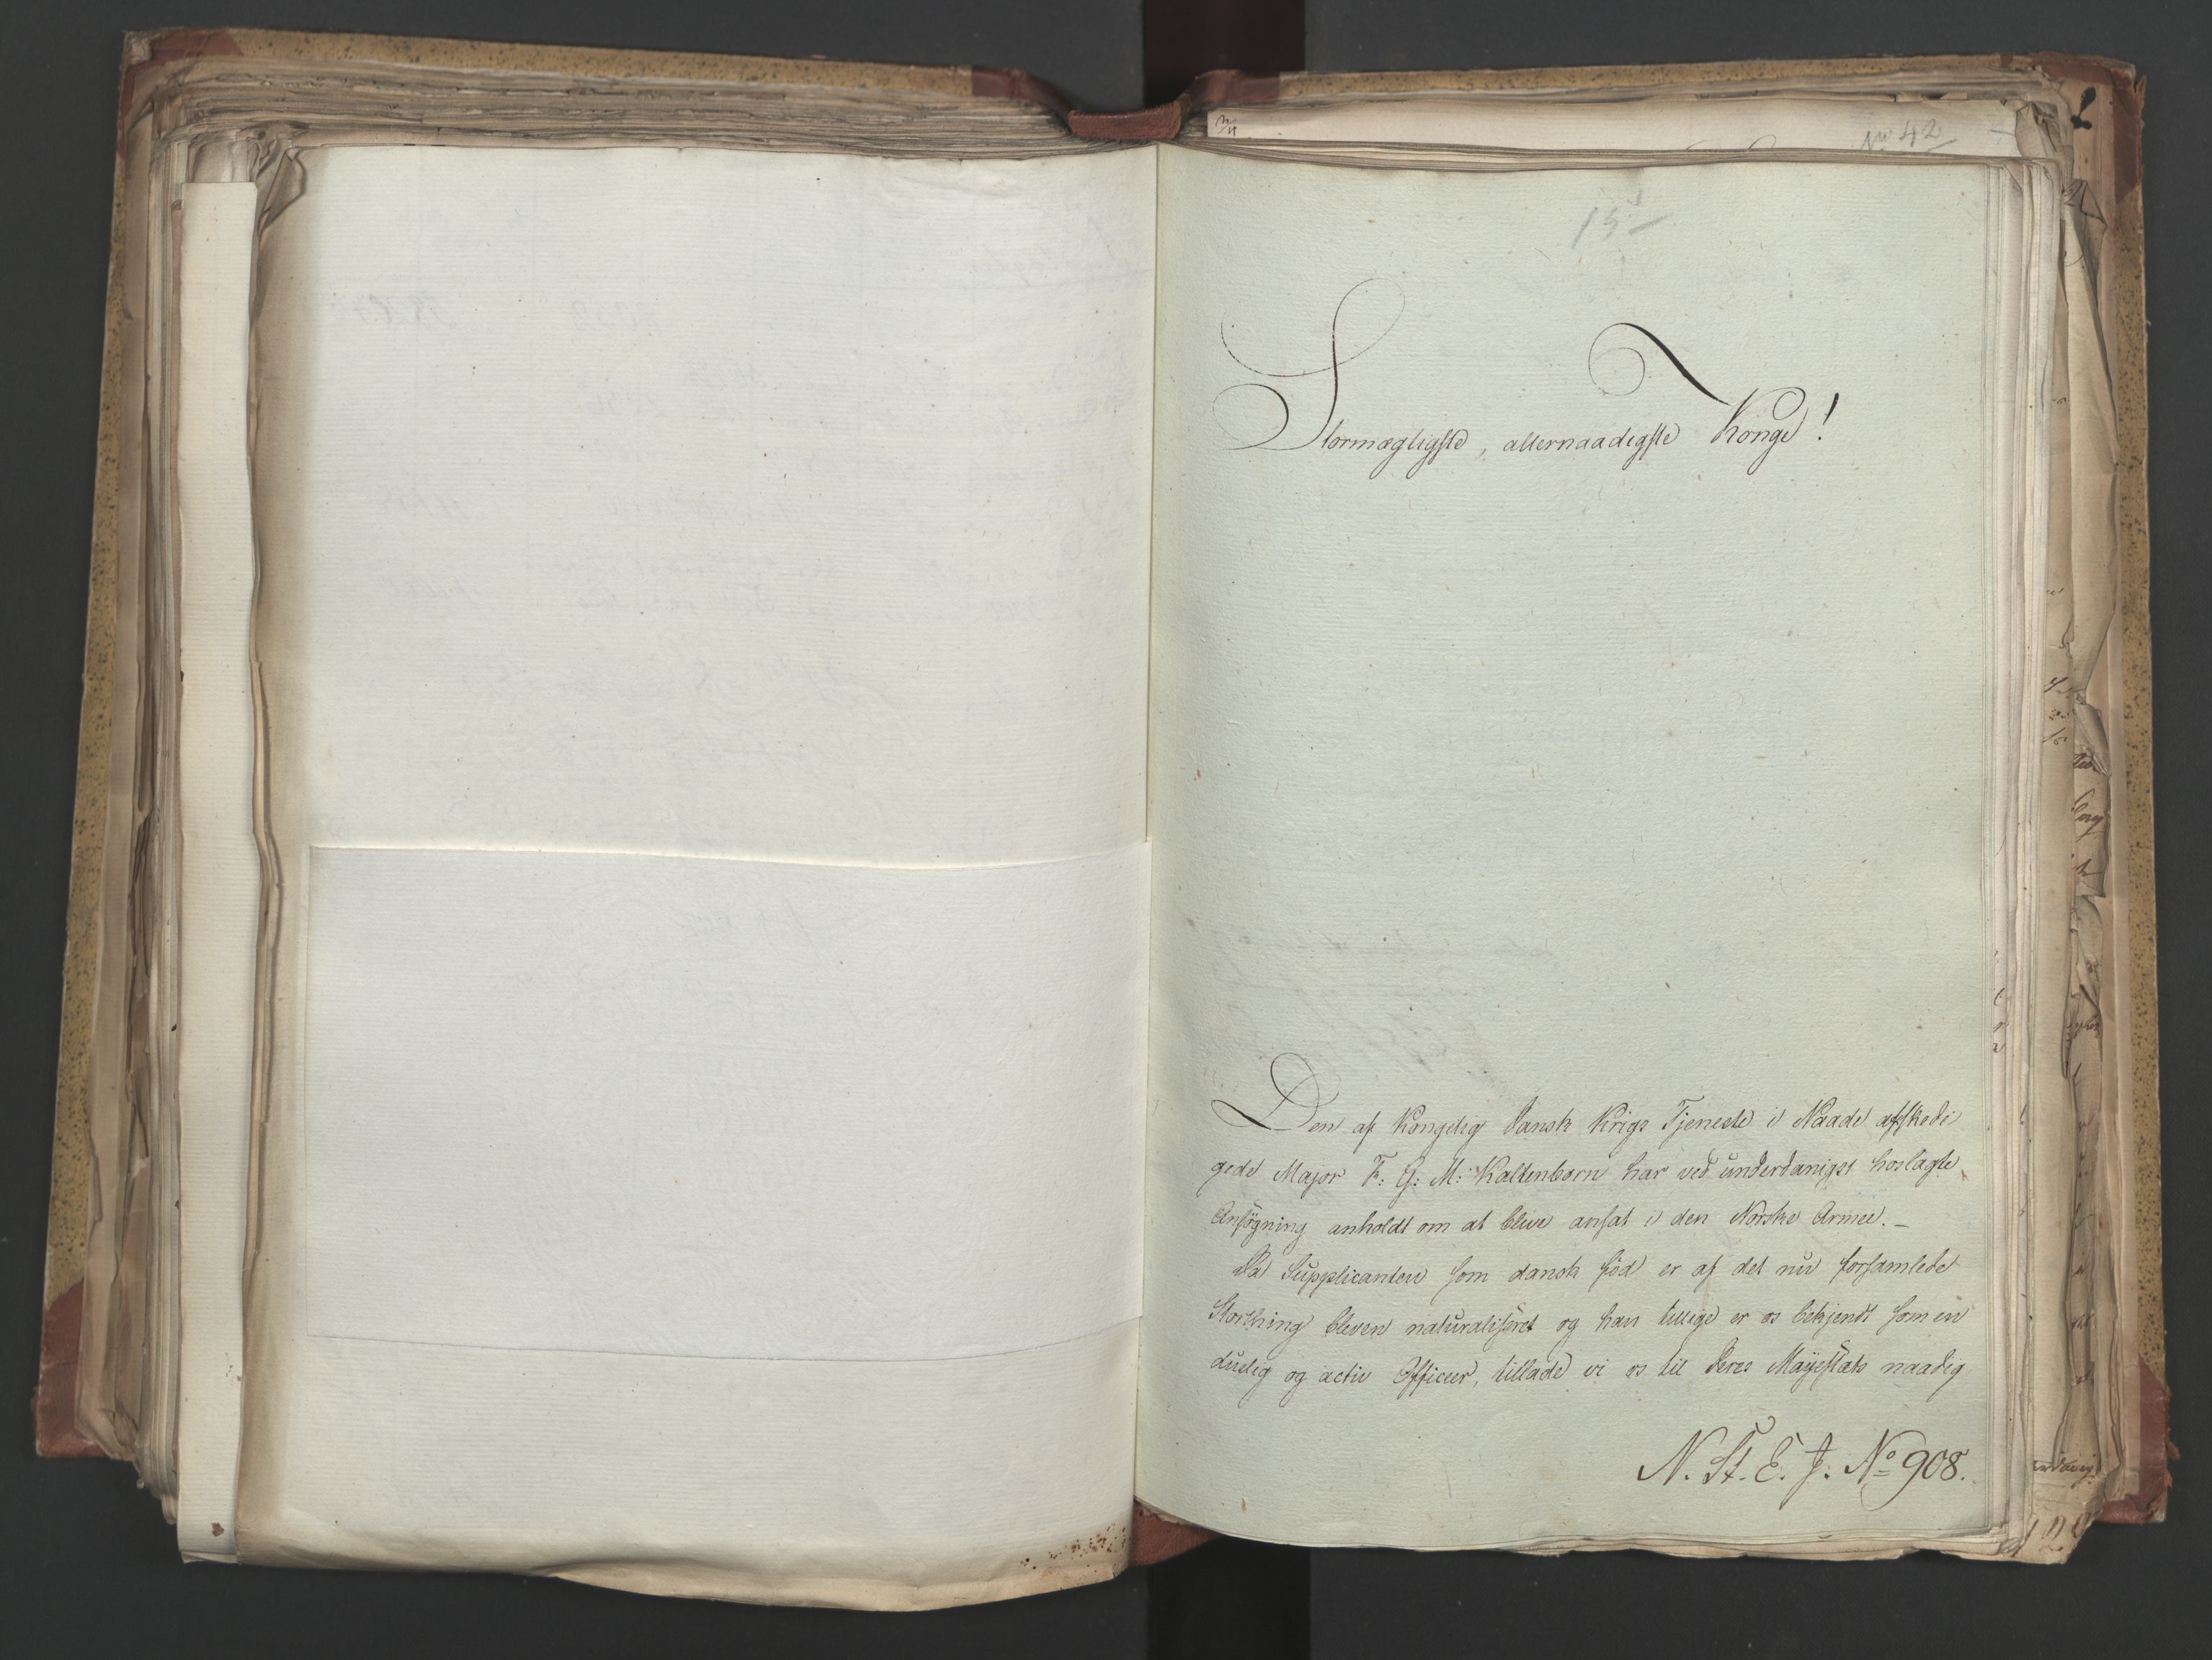 No 42
15
Stormægtigste, allernaadigste Konge!
Den af Kongelig Dansk Krigs Tjeneste i Naade afskedi
gede Major F: G: M: Kaltenborn har ved underdanigst hoslagte
Ansøgning anholdt om at blive ansat i den Norske Armee. –
Da Supplicanten som dansk fød er af det nu forsamlede
Storthing bleven naturaliseret og han tillige er os bekjendt som en
duelig og activ Officeer, tillade vi os til Deres Mayestæts naadig
N. St. E. J. No 908.